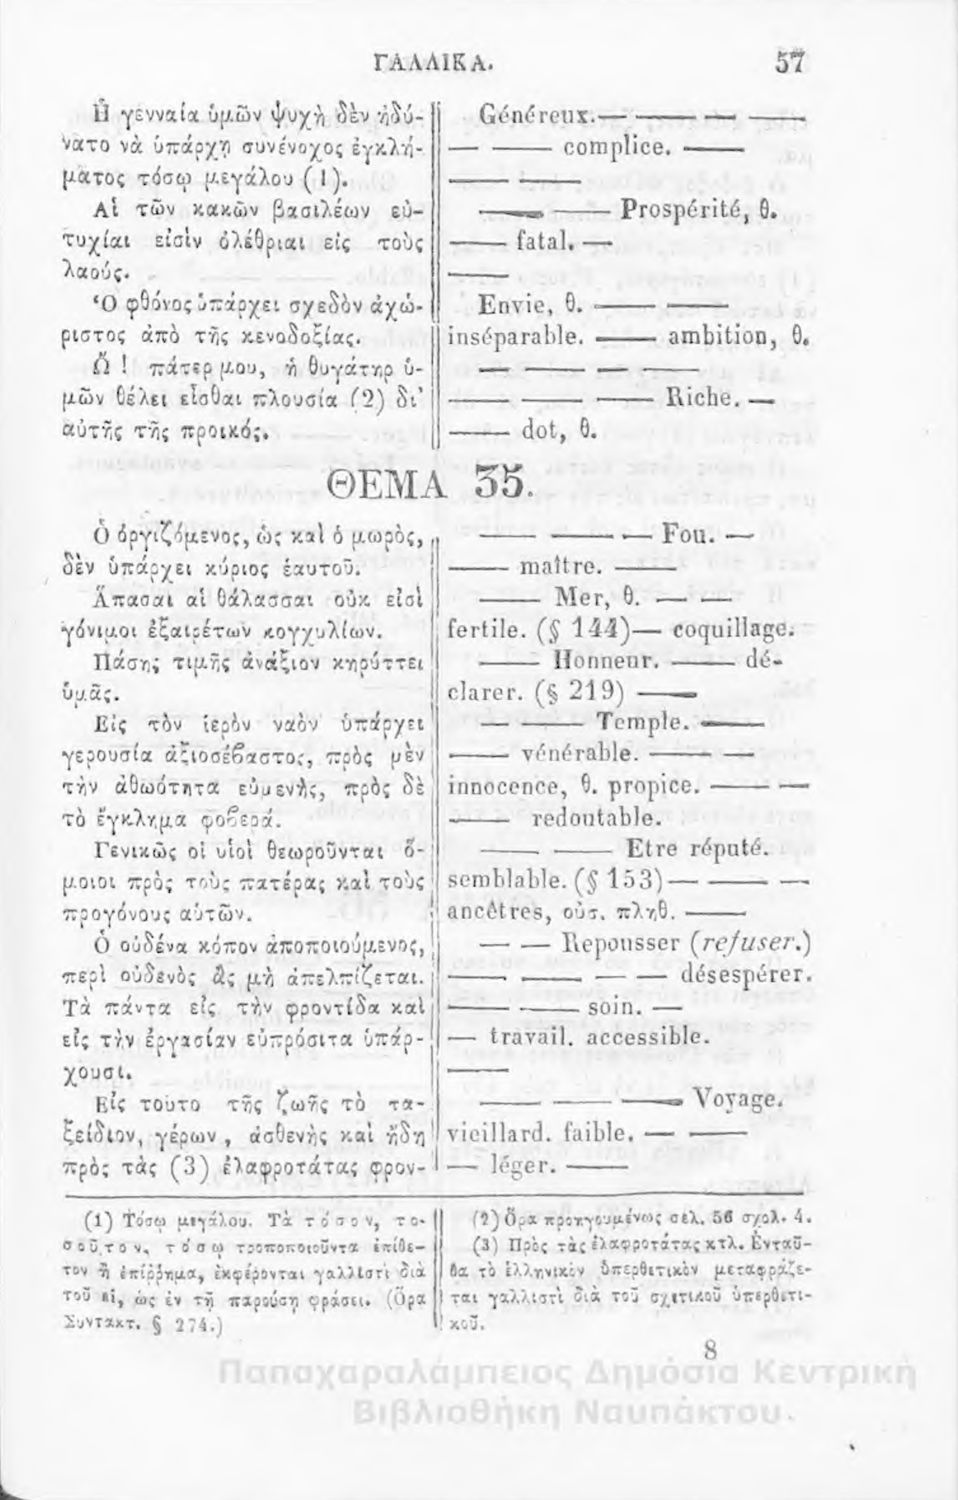 ΓΑΛΛΙΚΑ. 57
Ἡ γενναία ὑμῶν ψυχὴ δὲν ἠδύ-
νατο νὰ ὑπάρχῃ συνένοχος ἐγκλή-
ματος τόσῳ μεγάλου (1).
Αἱ τῶν κακῶν βασιλέων εὐ-
τυχίαι εἰσὶν ὀλέθριαι εἰς τοὺς
λαούς.
Ὁ φθόνος ὑπάρχει σχεδὸν ἀχώ-
ριστος ἀπὸ τῆς κενοδοξίας.
Ὦ ! πάτερ μου, ἡ θυγάτηρ ὑ-
μῶν θέλει εἶσθαι πλουσία (2) δι’
αὐτῆς τῆς προικός.
Généreux.— —— — ——
— —— complice. ——
—— ——
—— —— Prospérité, θ.
—— fatal. —
——
Envie, θ. —— ——
inséparable. —— ambition, θ.
—— —— ——
—— —— —— Riche. —
—— dot, θ.
ΘΕΜΑ 35.
Ὁ ὀργιζόμενος, ὡς καὶ ὁ μωρὸς,
δὲν ὑπάρχει κύριος ἑαυτοῦ.
Ἅπασαι αἱ θάλασσαι οὐκ εἰσὶ
γόνιμοι ἐξαιρέτων κογχυλίων.
Πάσης τιμῆς ἀνάξιον κηρύττει
ὑμᾶς.
Εἰς τὸν ἱερὸν ναὸν ὑπάρχει
γερουσία ἀξιοσέβαστος, πρὸς μὲν
τὴν ἀθωότητα εὐμενὴς, πρὸς δὲ
τὸ ἔγκλημα φοβερά.
Γενικῶς οἱ υἱοὶ θεωροῦνται ὅ-
μοιοι πρὸς τοὺς πατέρας καὶ τοὺς
προγόνους αὐτῶν.
Ὁ οὐδένα κόπον ἀποποιούμενος,
περὶ οὐδενὸς ἂς μὴ ἀπελπίζεται.
Τὰ πάντα εἰς τὴν φροντίδα καὶ
εἰς τὴν ἐργασίαν εὐπρόσιτα ὑπάρ-
χουσι.
Εἰς τοῦτο τῆς ζωῆς τὸ τα-
ξείδιον, γέρων, ἀσθενὴς καὶ ἤδη
πρὸς τὰς (3) ἐλαφροτάτας φρον-
—— —— — Fou. —
—— maître. ——
—— Mer, θ. — —
fertile. (§ 144)— coquillage.
—— Honneur. —— dé-
clarer. (§ 219) ——
—— —— Temple. ——
—— vénérable. —— —
innocence, θ. propice. —— —
—— redoutable.
—— —— Etre réputé.
semblable. (§ 153)— —— —
ancêtres, οὐσ. πληθ. ——
— — Repousser (refuser.)
—— —— — — désespérer.
—— —— soin. —
— travail. accessible.
——
—— —— —— Voyage.
vieillard. faible. — ——
— léger. ——
(1) Τόσῳ μεγάλου. Τὰ τόσον, το-
σοῦτον, τόσῳ τροποποιοῦντα ἐπίθε-
τον ἢ ἐπίρρημα, ἐκφέρονται γαλλιστὶ διὰ
τοῦ si, ὡς ἐν τῇ παρούσῃ φράσει. (Ὅρα
Συντακτ. § 274.)
(2) Ὅρα προηγουμένως σελ. 56 σχολ. 4.
(3) Πρὸς τὰς ἐλαφροτάτας κτλ. Ἐνταῦ-
θα τὸ ἑλληνικὸν ὑπερθετικὸν μεταφράζε-
ται γαλλιστὶ διὰ τοῦ σχετικοῦ ὑπερθετι-
κοῦ.
8
Παπαχαραλάμπειος Δημόσια Κεντρική
Βιβλιοθήκη Ναυπάκτου.